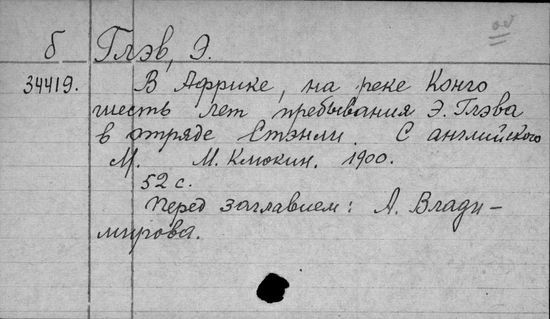 б Глэв, Э.
34419. В Африке, на реке Конго
шесть лет пребывания Э. Глэва
в отряде Стэнли. С английского
М. М. Клюкин. 1900.
52 с.
Перед заглавием: А. Влади-
мирова.